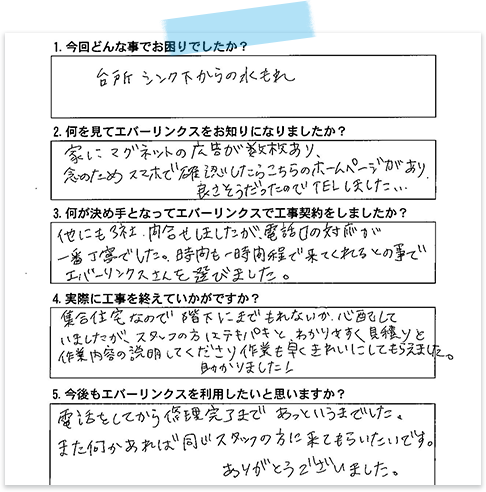 1. 今回どんな事でお困りでしたか?
台所 シンク下からの水もれ
2. 何を見てエバーリンクスをお知りになりましたか?
家に マグネットの広告が数枚あり、
念のためスマホで確認したらこちらのホームページがあり
良さそうだったのでTELしました...
3. 何が決め手となってエバーリンクスで工事契約をしましたか?
他にも3社、問合せしましたが、電話口の対応が
一番丁寧でした。時間も一時間程で来てくれるとの事で
エバーリンクスさんを選びました。
4. 実際に工事を終えていかがですか?
集合住宅なので階下にまでもれないか、心配して
いましたが、スタッフの方はテキパキと、わかりやすく見積りと
作業内容の説明してくださり作業も早くきれいにしてもらえました。
助かりました!
5. 今後もエバーリンクスを利用したいと思いますか?
電話をしてから修理完了まで あっというまでした。
また何かあれば同じスタッフの方に来てもらいたいです。
ありがとうございました。